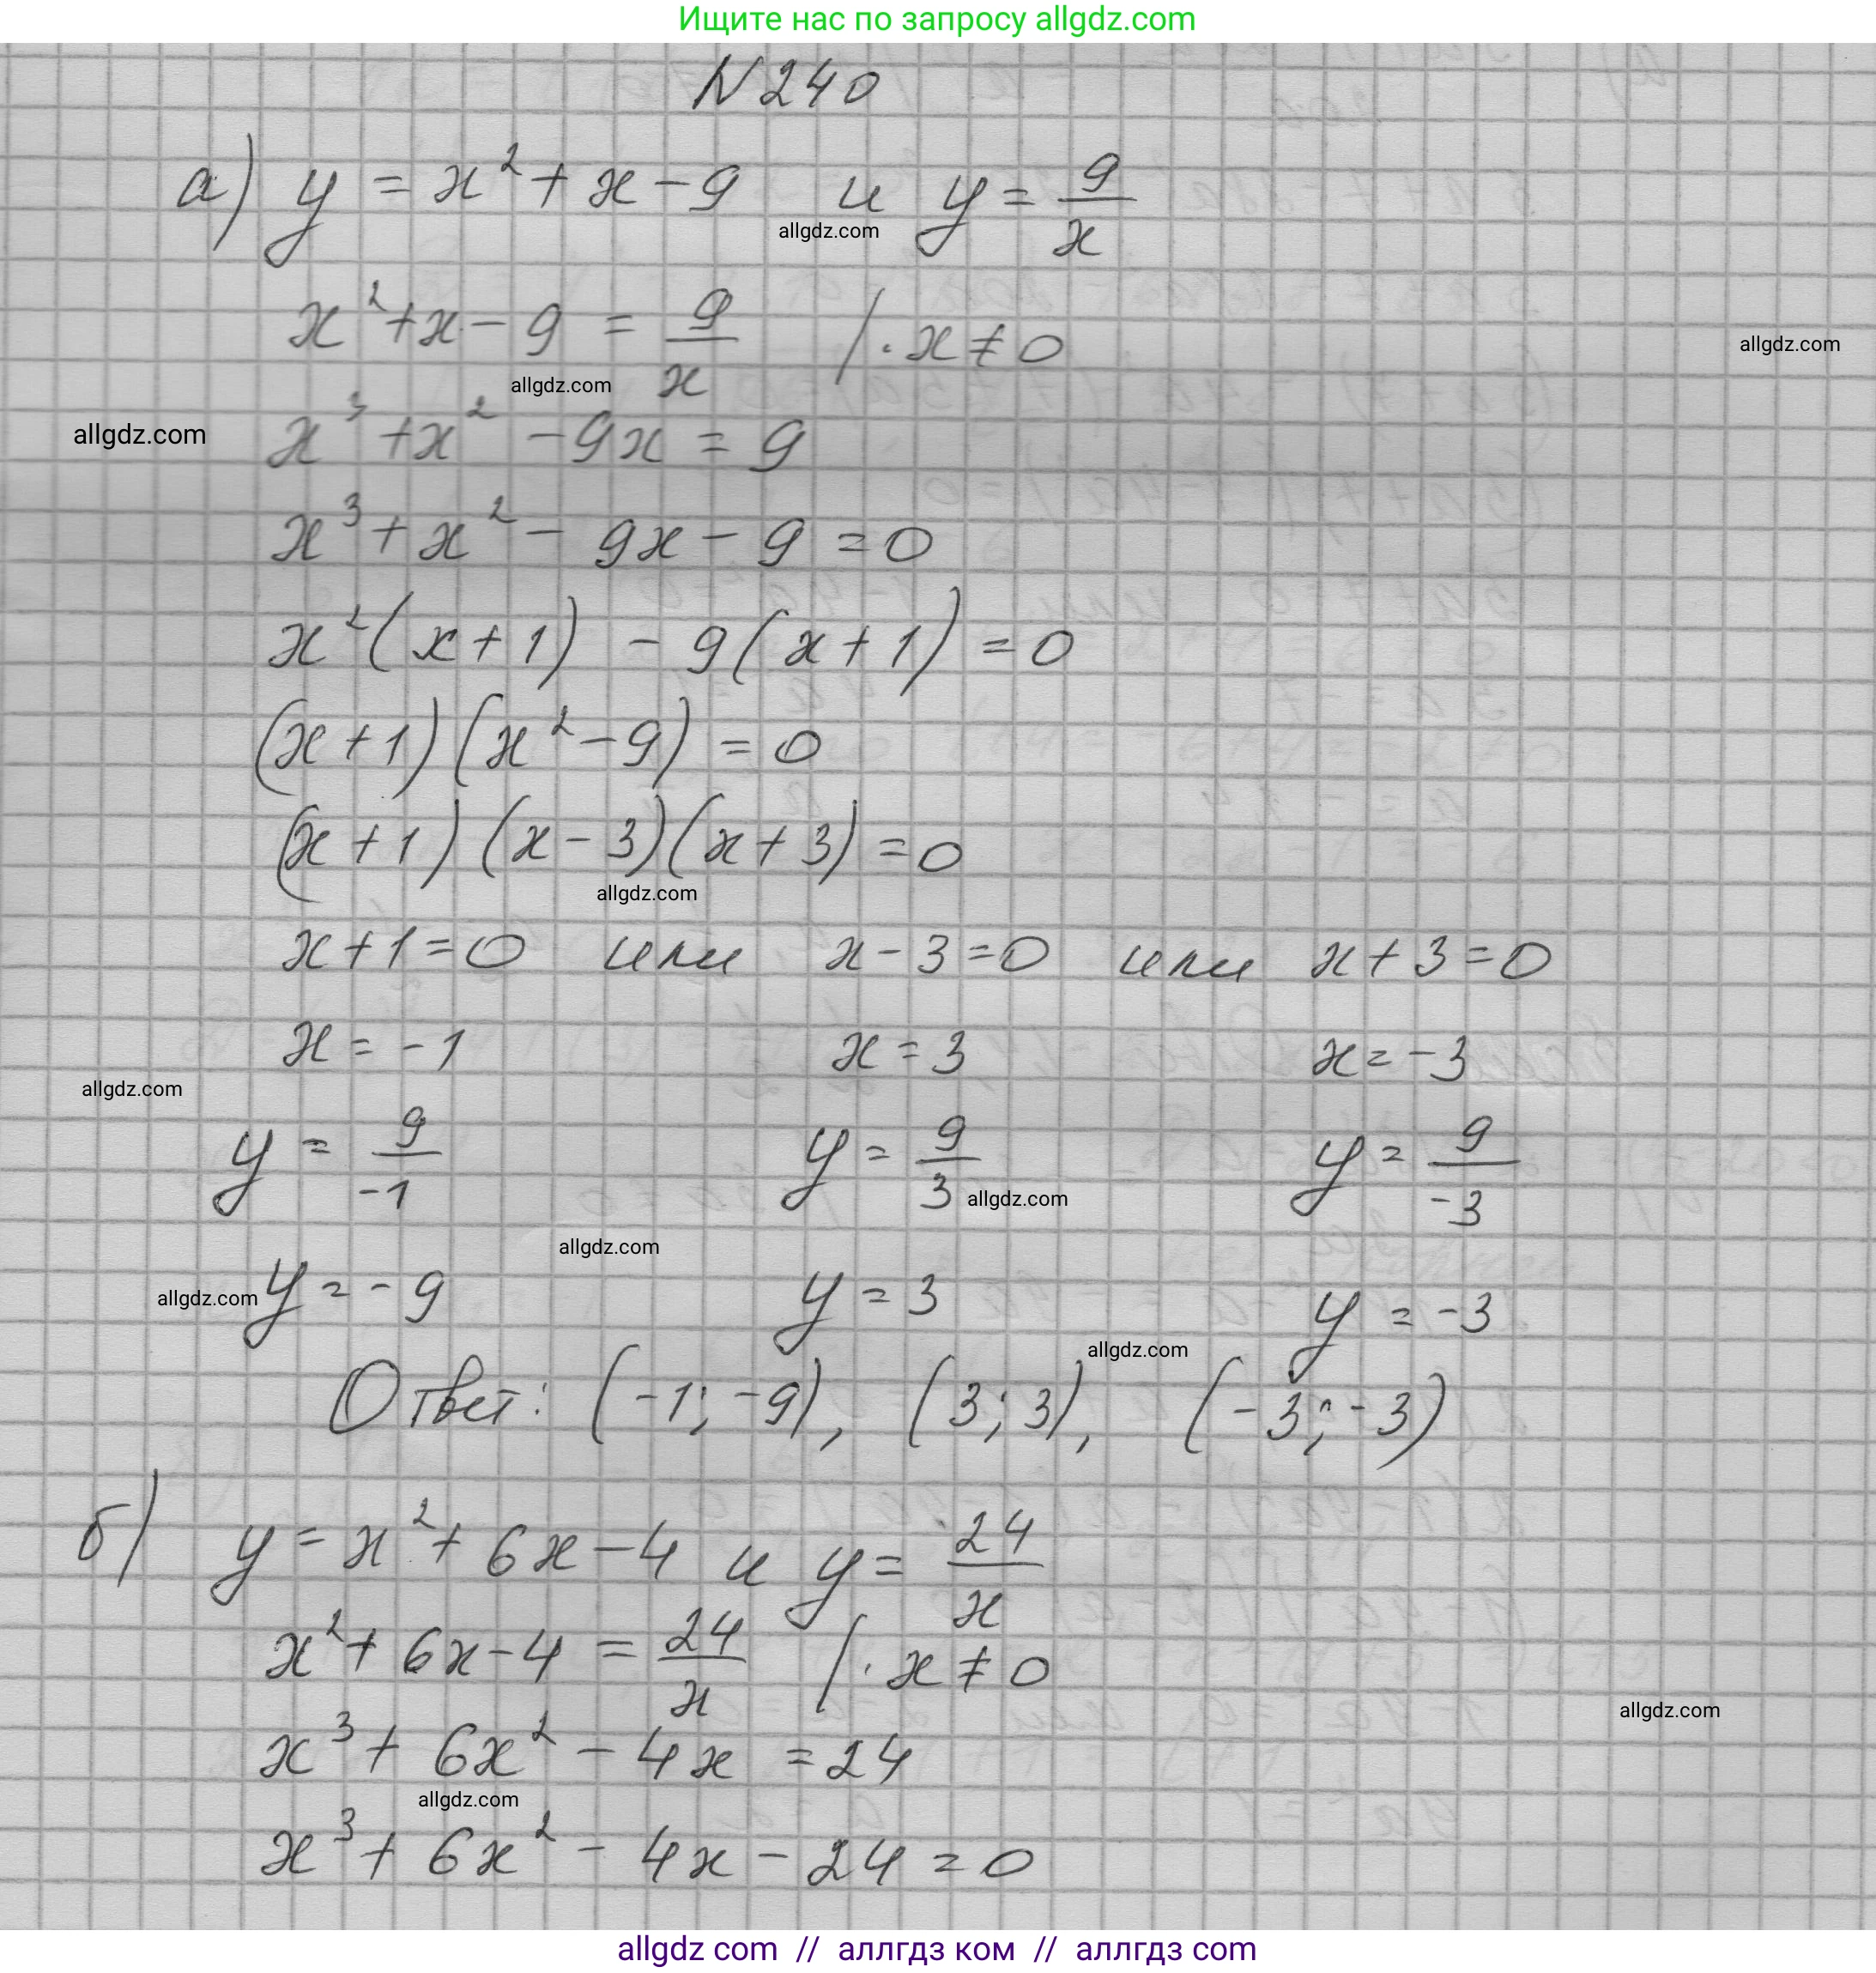 Ищите нас по запросу allgdz.com
N 240
а) y = x² + x - 9 и y = 9/x
allgdz.com
x² + x - 9 = 9/x | · x ≠ 0
allgdz.com
allgdz.com
x³ + x² - 9x = 9
allgdz.com
x³ + x² - 9x - 9 = 0
x²(x + 1) - 9(x + 1) = 0
(x + 1)(x² - 9) = 0
(x + 1)(x - 3)(x + 3) = 0
allgdz.com
x + 1 = 0 или x - 3 = 0 или x + 3 = 0
x = -1 x = 3 x = -3
allgdz.com
y = 9/-1 y = 9/3 y = 9/-3
allgdz.com
allgdz.com
y = -9 y = 3 y = -3
allgdz.com
allgdz.com
Ответ: (-1; -9), (3; 3), (-3; -3)
б) y = x² + 6x - 4 и y = 24/x
x² + 6x - 4 = 24/x | · x ≠ 0
allgdz.com
x³ + 6x² - 4x = 24
allgdz.com
x³ + 6x² - 4x - 24 = 0
allgdz com // аллгдз ком // аллгдз com